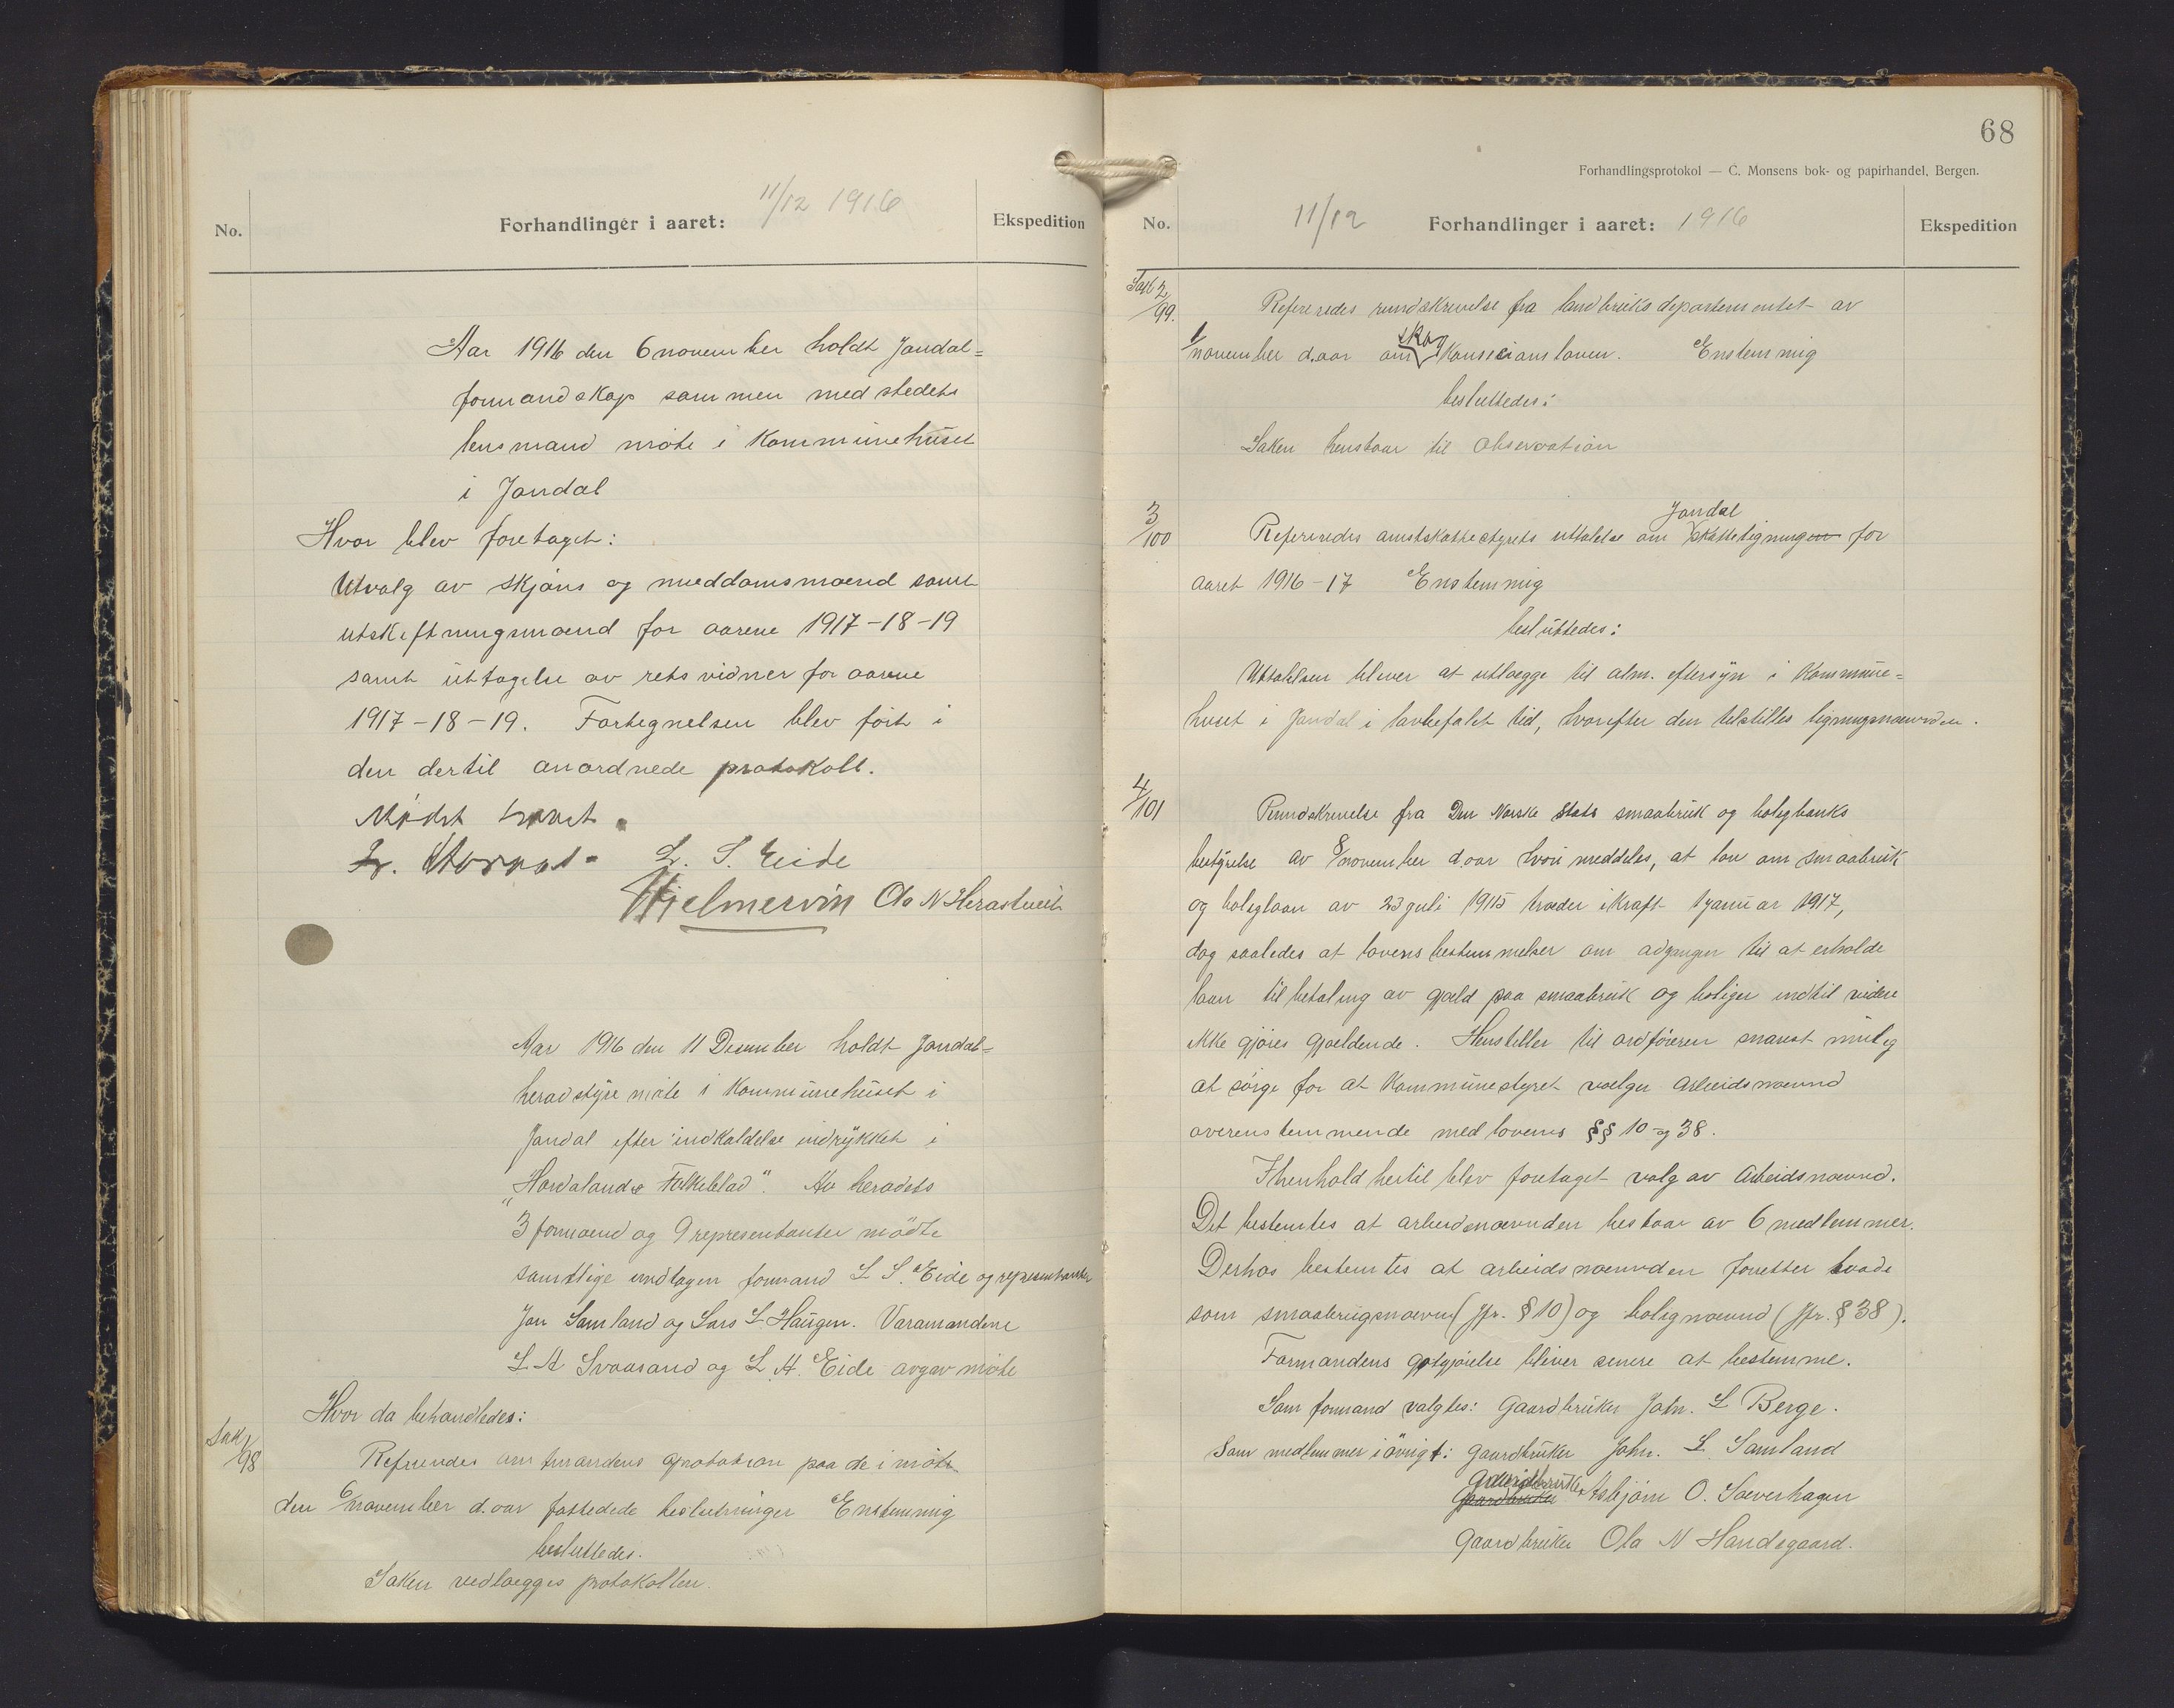 No.
Forhandlinger i aaret:
11/12 1916
Ekspedition
Aar 1916 den 6 november holdt Jondal=
formandskap sammen med stedets
lensmand möte i Kommünehüset
i Jondal
Hvor blev foretaget:
Utvalg av skjöns og meddomsmænd samt
utskiftningsmænd for aarene 1917-18-19
samt üttagelse av retsvidner for aarene
1917-18-19. Fortegnelsen blev fört i
den dertil anordnede protokoll.
Mødet hævet.
L. S. Eide
Hjelmervin Ola N Herastveit
Aar 1916 den 11 December holdt Jondal=
heradstyre möte i Kommünehüset i
Jondal efter indkaldelse indrykket i
„Hordalands Folkeblad". Av heradets
3 formænd og 9 representanter mödte
samtlige undtagen formand L S. Eide og representanter
Jon Samland og Lars L. Haugen. Varamændene
L. A Svaasand og L. H. Eide avgav möte
Hvor da behandledes:
Sak 1/98
Refereredes amtmandens aprobation paa de i möte
den 6/november d.aar fattedede beslutninger Enstemmig
besluttedes.
Saken vedlægges protokollen.
68
Forhandlingsprotokol — C. Monsens bok- og papirhandel, Bergen.
No.
11/12
Forhandlinger i aaret: 1916
Ekspedition
Sak 2/99.
Refereredes rundskrivelse fra landbruksdepartementet av
1/november d.aar om skogkonsesionsloven. Enstemmig
besluttedes:
Saken henstaar til observation
3/100
Refereredes amtskattestyrets uttalelse om Jondal skatteligningen for
aaret 1916-17 Enstemmig
beslüttedes:
Uttalelsen bliver at utlægge til alm. eftersyn i Kommüne=
huset i Jondal i lovbefalet tid, hvorefter den tilstilles ligningsnævnden.
4/101
Rundskrivelse fra Den Norske Stats smaabruk og boligbanks
bestyrelse av 8/november d.aar hvori meddeles, at lov om smaabruk
og boliglaan av 23 juli 1915 træder ikraft 1 januar 1917,
dog saaledes at lovens bestemmelser om adgangen til at erholde
laan til betaling av gjæld paa smaabruk og boliger indtil videre
ikke gjöres gjældende. Henstiller til ordföreren snarest mülig
at sörge for at Kommünestyret vælger arbeidsnævnd
överenstemmende med lovens §§ 10 og 38.
I henhold hertil blev foretaget valg av Arbeidsnævnd.
Det bestemtes at arbeidsnævnden bestaar av 6 medlemmer.
Derhos bestemtes at arbeidsnævnden forretter baade
som smaabrugsnævn (jfr. § 10) og bolignævnd (jfr. § 38).
Formandens godtgjörelse bliver senere at bestemme.
Som formand valgtes: Gaardbrüker Johs. L Berge.
Som medlemmer iövrigt: gaardbrüker Johs. L. Samland
Gaardbrüker Asbjörn O. Sæverhagen
Gaardbrüker Ola N Handegaard.